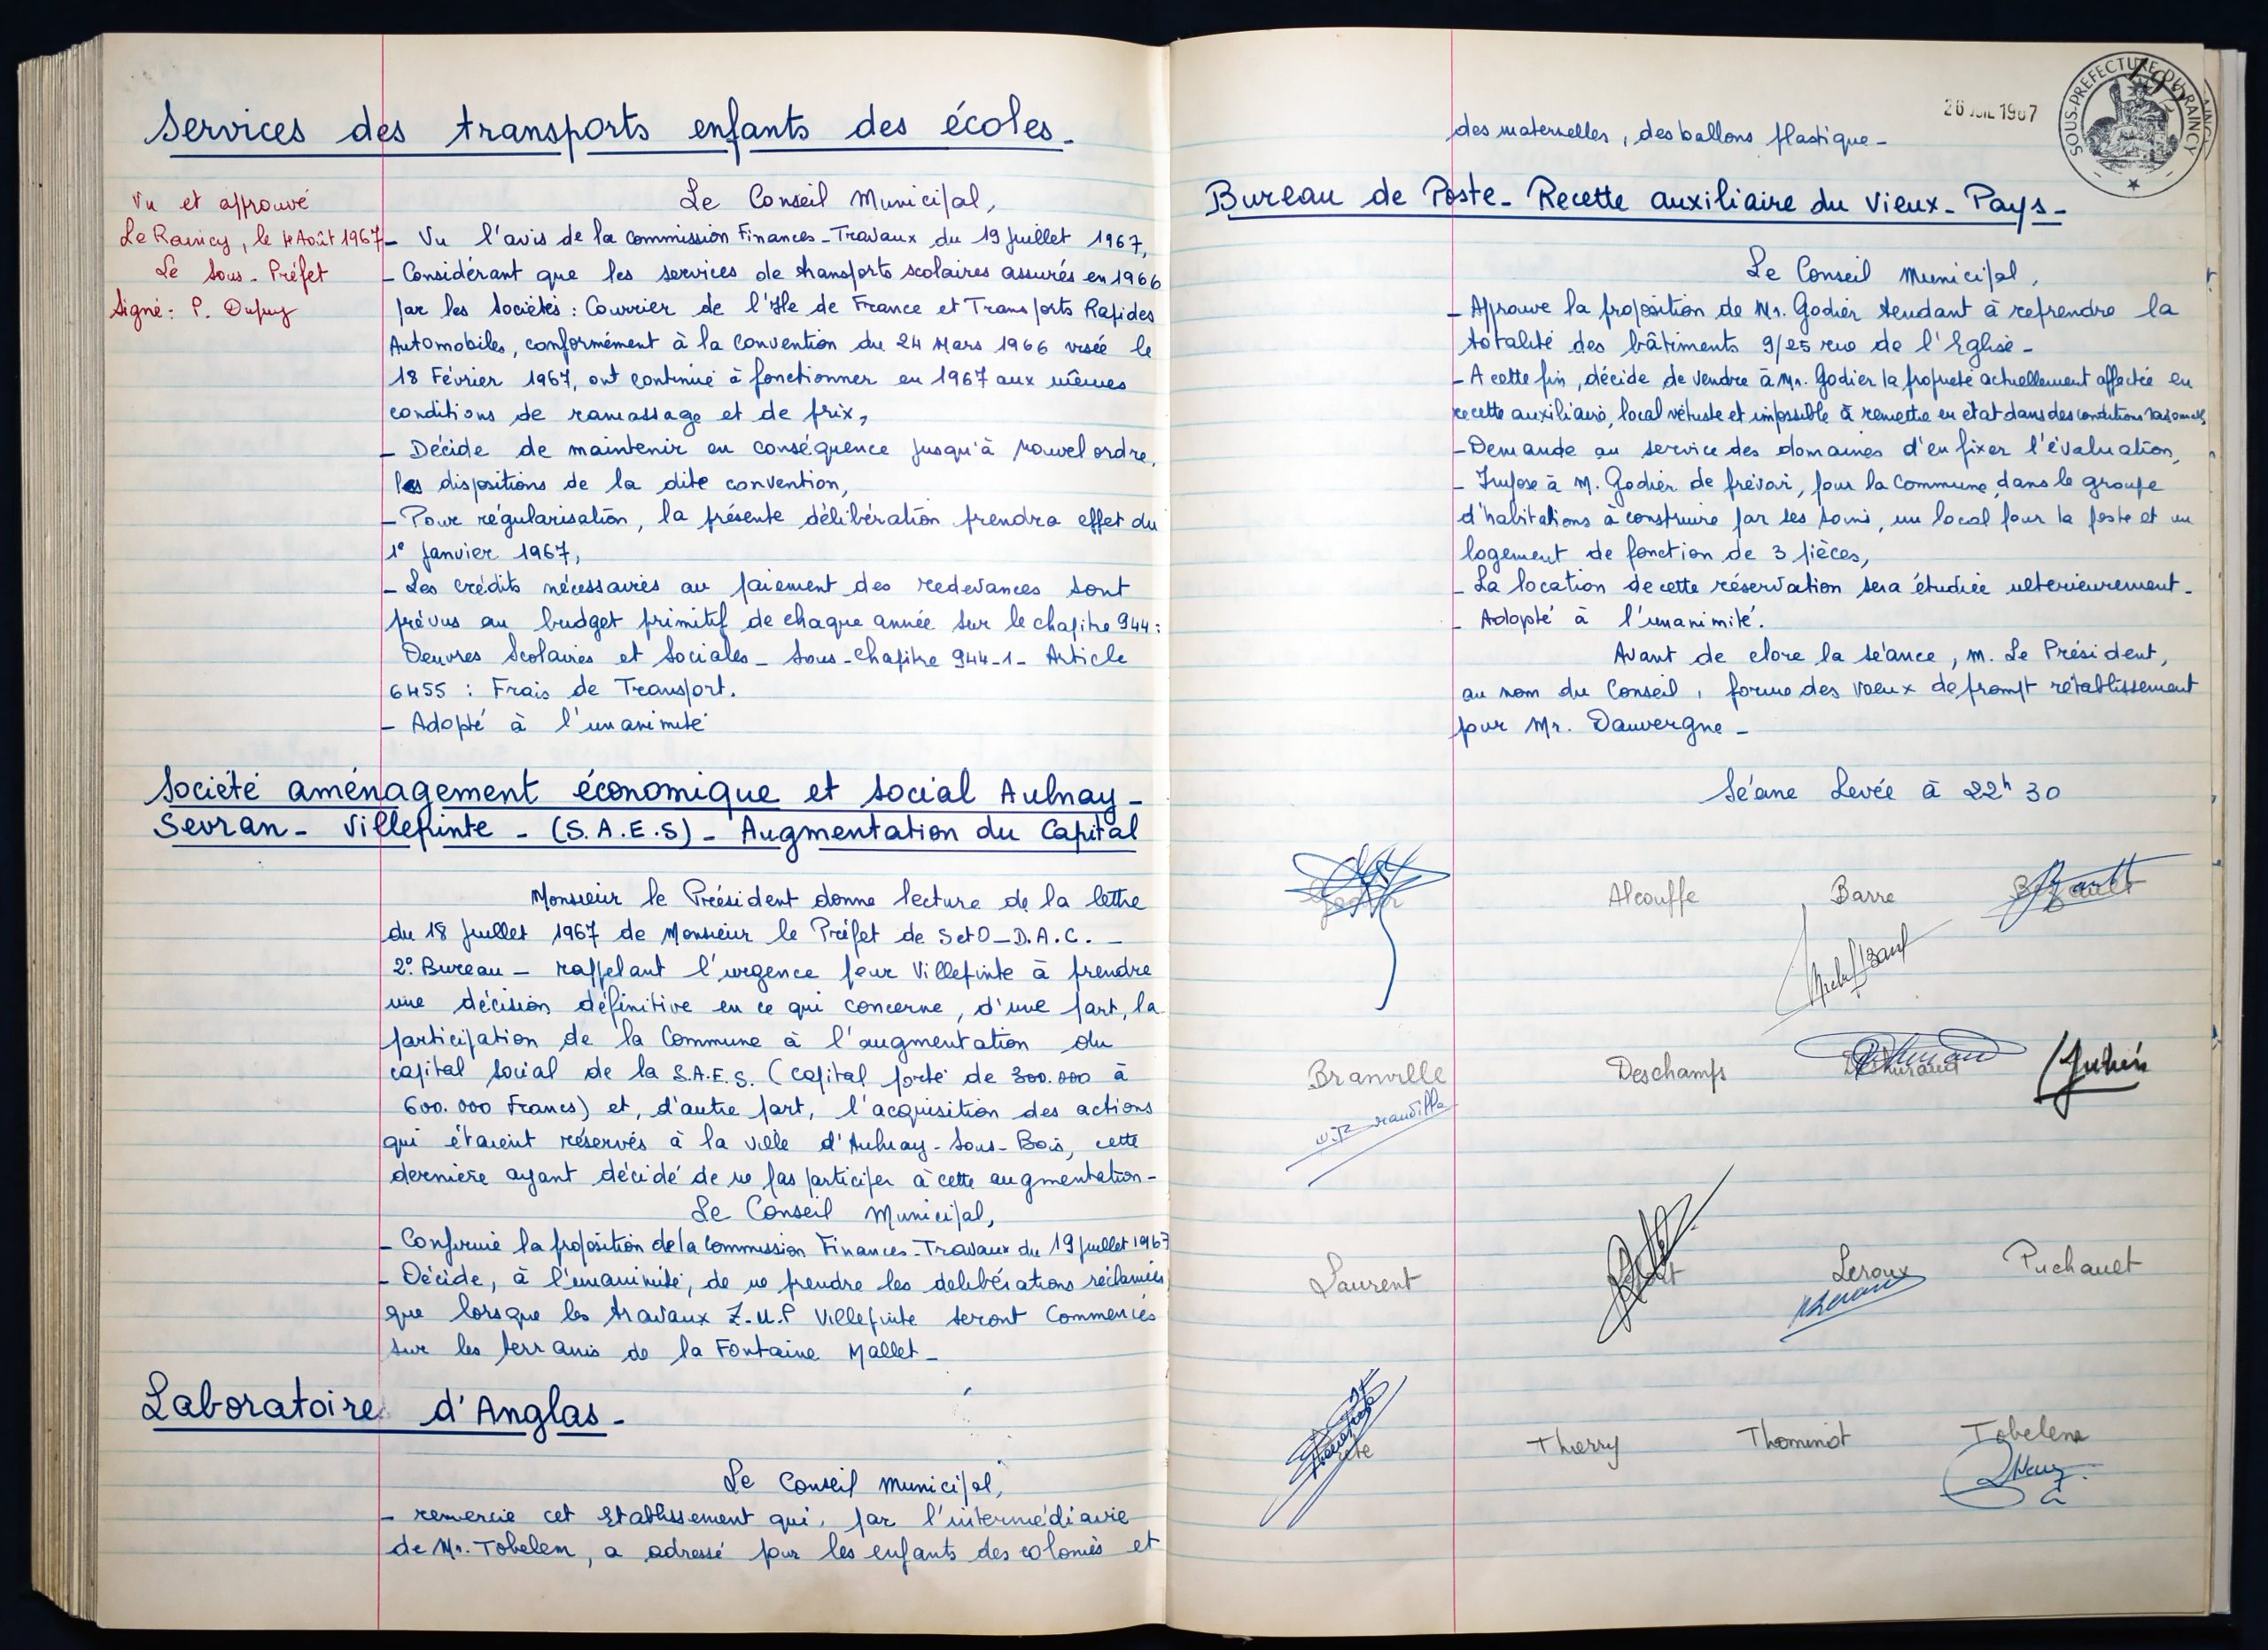 Services des transports enfants des écoles_
Vu et approuvé
Le Raincy, le 4 Août 1967
Le Sous-Préfet
Signé: P. Dupuy
Le Conseil Municipal,
_ Vu l'avis de la commission Finances-Travaux du 19 Juillet 1967,
_ Considérant que les services de transports scolaires assurés en 1966
par les Sociétés : Courrier de l'Ile de France et Transports Rapides
Automobiles, conformément à la convention du 24 Mars 1966 visée le
18 Février 1967, ont continué à fonctionner en 1967 aux mêmes
conditions de ramassage et de prix,
_ Décide de maintenir en conséquence jusqu'à nouvel ordre,
les dispositions de la dite convention,
_ Pour régularisation, la présente délibération prendra effet du
1° Janvier 1967,
_ Les crédits nécessaires au paiement des redevances sont
prévus au budget primitif de chaque année sur le chapitre 944 :
Oeuvres Scolaires et Sociales_ Sous-chapitre 944-1- Article
6455 : Frais de Transport.
_ Adopté à l'unanimité
Société aménagement économique et social Aulnay_
Sevran_ Villepinte _ (S.A.E.S)_ Augmentation du Capital
Monsieur le Président donne lecture de la lettre
du 18 Juillet 1967 de Monsieur le Préfet de S et O_D.A.C. _
2° Bureau _ rappelant l'urgence pour Villepinte à prendre
une décision définitive en ce qui concerne, d'une part, la
participation de la Commune à l'augmentation du
capital social de la S.A.E.S. (capital porté de 300.000 à
600.000 Francs) et, d'autre part, l'acquisition des actions
qui étaient réservés à la ville d'Aulnay-Sous-Bois, cette
dernière ayant décidé de ne pas participer à cette augmentation-
Le Conseil Municipal,
_ Confirme la proposition de la Commission Finances-Travaux du 19 Juillet 1967
_ Décide, à l'unanimité, de ne prendre les delibérations réclamées
que lorsque les travaux Z.U.P Villepinte seront Commencés
sur les terrains de la Fontaine Mallet_
Laboratoire d'Anglas_
Le Conseil Municipal,
_ remercie cet Etablissement qui, par l'intermédiaire
de Mr. Tobelem, a adressé pour les enfants des colonies et
26 JUIL 1967
SOUS-PREFECTURE DU RAINCY
des maternelles, des ballons plastique_
Bureau de Poste_ Recette auxiliaire du Vieux_ Pays_
Le Conseil Municipal,
_ Approuve la proposition de Mr. Godier tendant à reprendre la
totalité des bâtiments 9/25 rue de l'Eglise_
_ A cette fin, décide de vendre à Mr. Godier la propriété actuellement affectée en
recette auxiliaire, local vétuste et impossible à remettre en état dans des conditions
_ Demande au service des domaines d'en fixer l'évaluation,
_ Impose à M. Godier de prévoir, pour la Commune, dans le groupe
d'habitations à construire par ses soins, un local pour la poste et un
logement de fonction de 3 pièces,
_ La location de cette réservation sera étudiée ulterieurement_
_ Adopté à l'unanimité.
Avant de clore la séance, M. Le Président,
au nom du Conseil, forme des voeux de prompt rétablissement
pour Mr. Dauvergne_
Séane Levée à 22h 30
Alcouffe Barre
Branville Deschamps
Laurent Leroux Puchauet
Thierry Thominot Tobelene